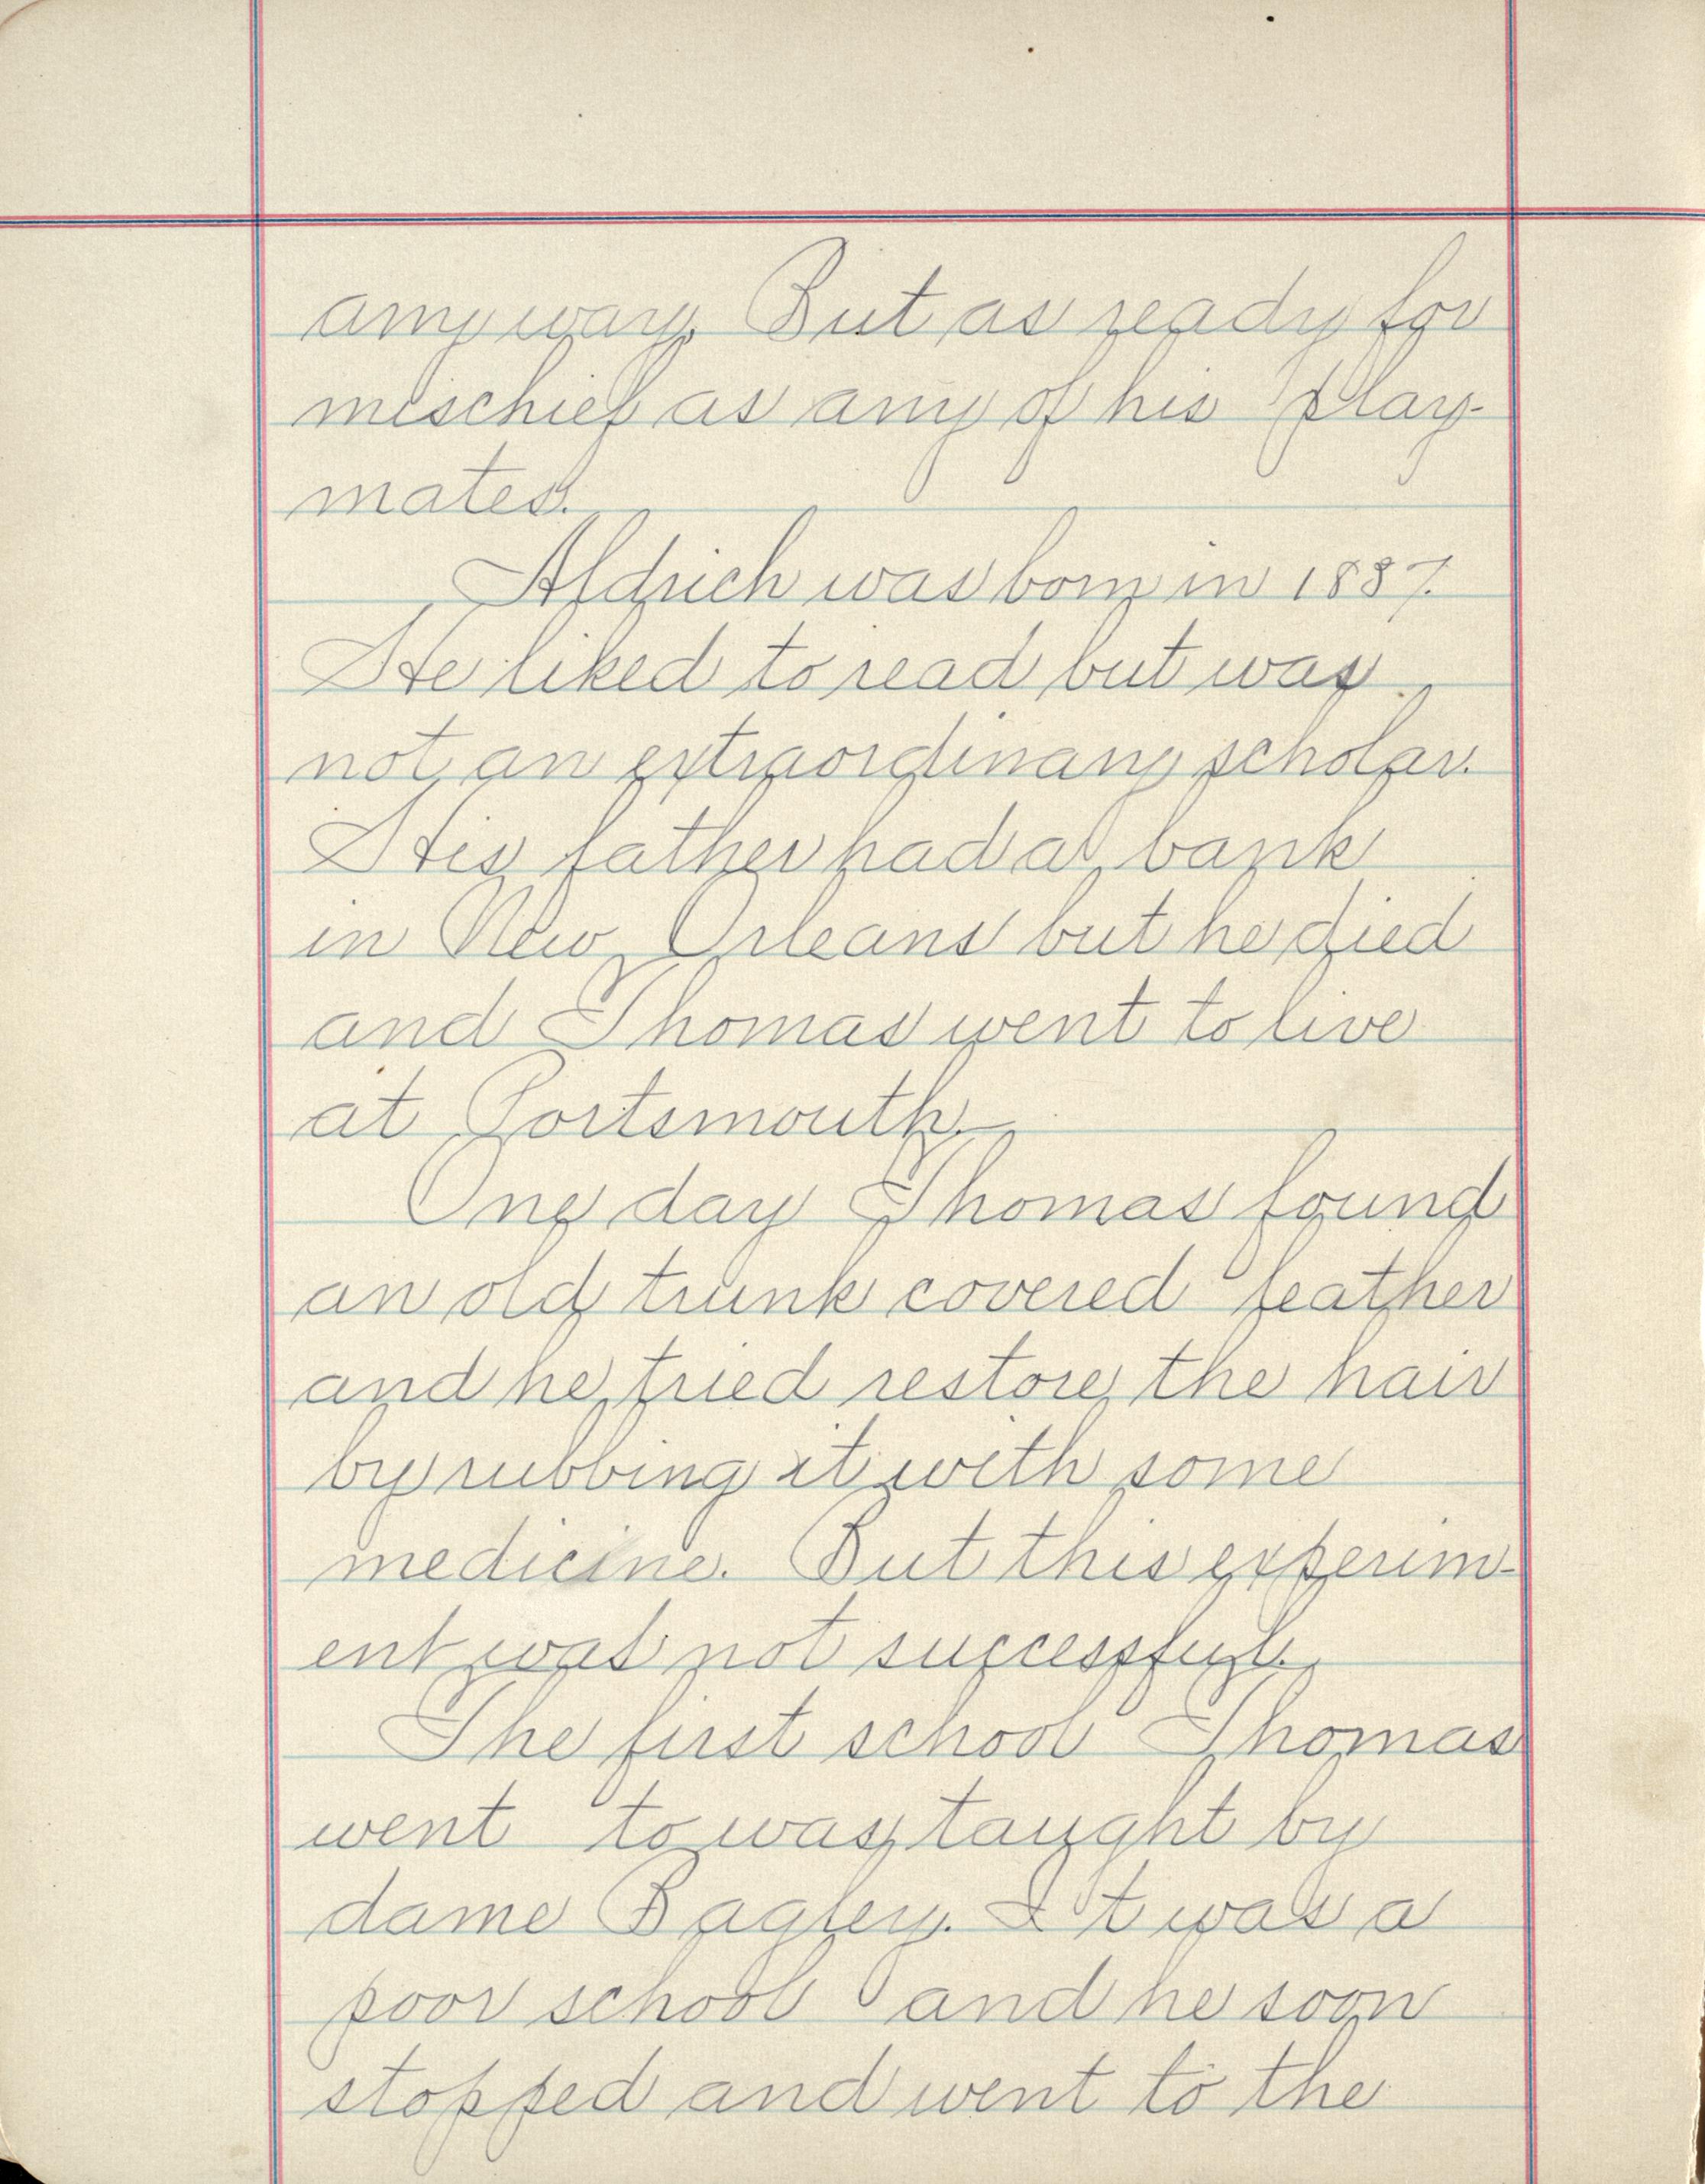 any way. But as ready for
mischief as any of his play-
mates.
Aldrich was born in 1887.
He liked to read but was
not an extraordinary scholar.
His father had a bank
in New Orleans but he died
and Thomas went to live
at Portsmouth.
One day Thomas found
an old trunk covered leather
and he tried restore the hair
by rubbing it with some
medicine. But this experim-
ent was not successful.
The first school Thomas
went to was taught by
dame Bagley. It was a
poor school and he soon
stopped and went to the